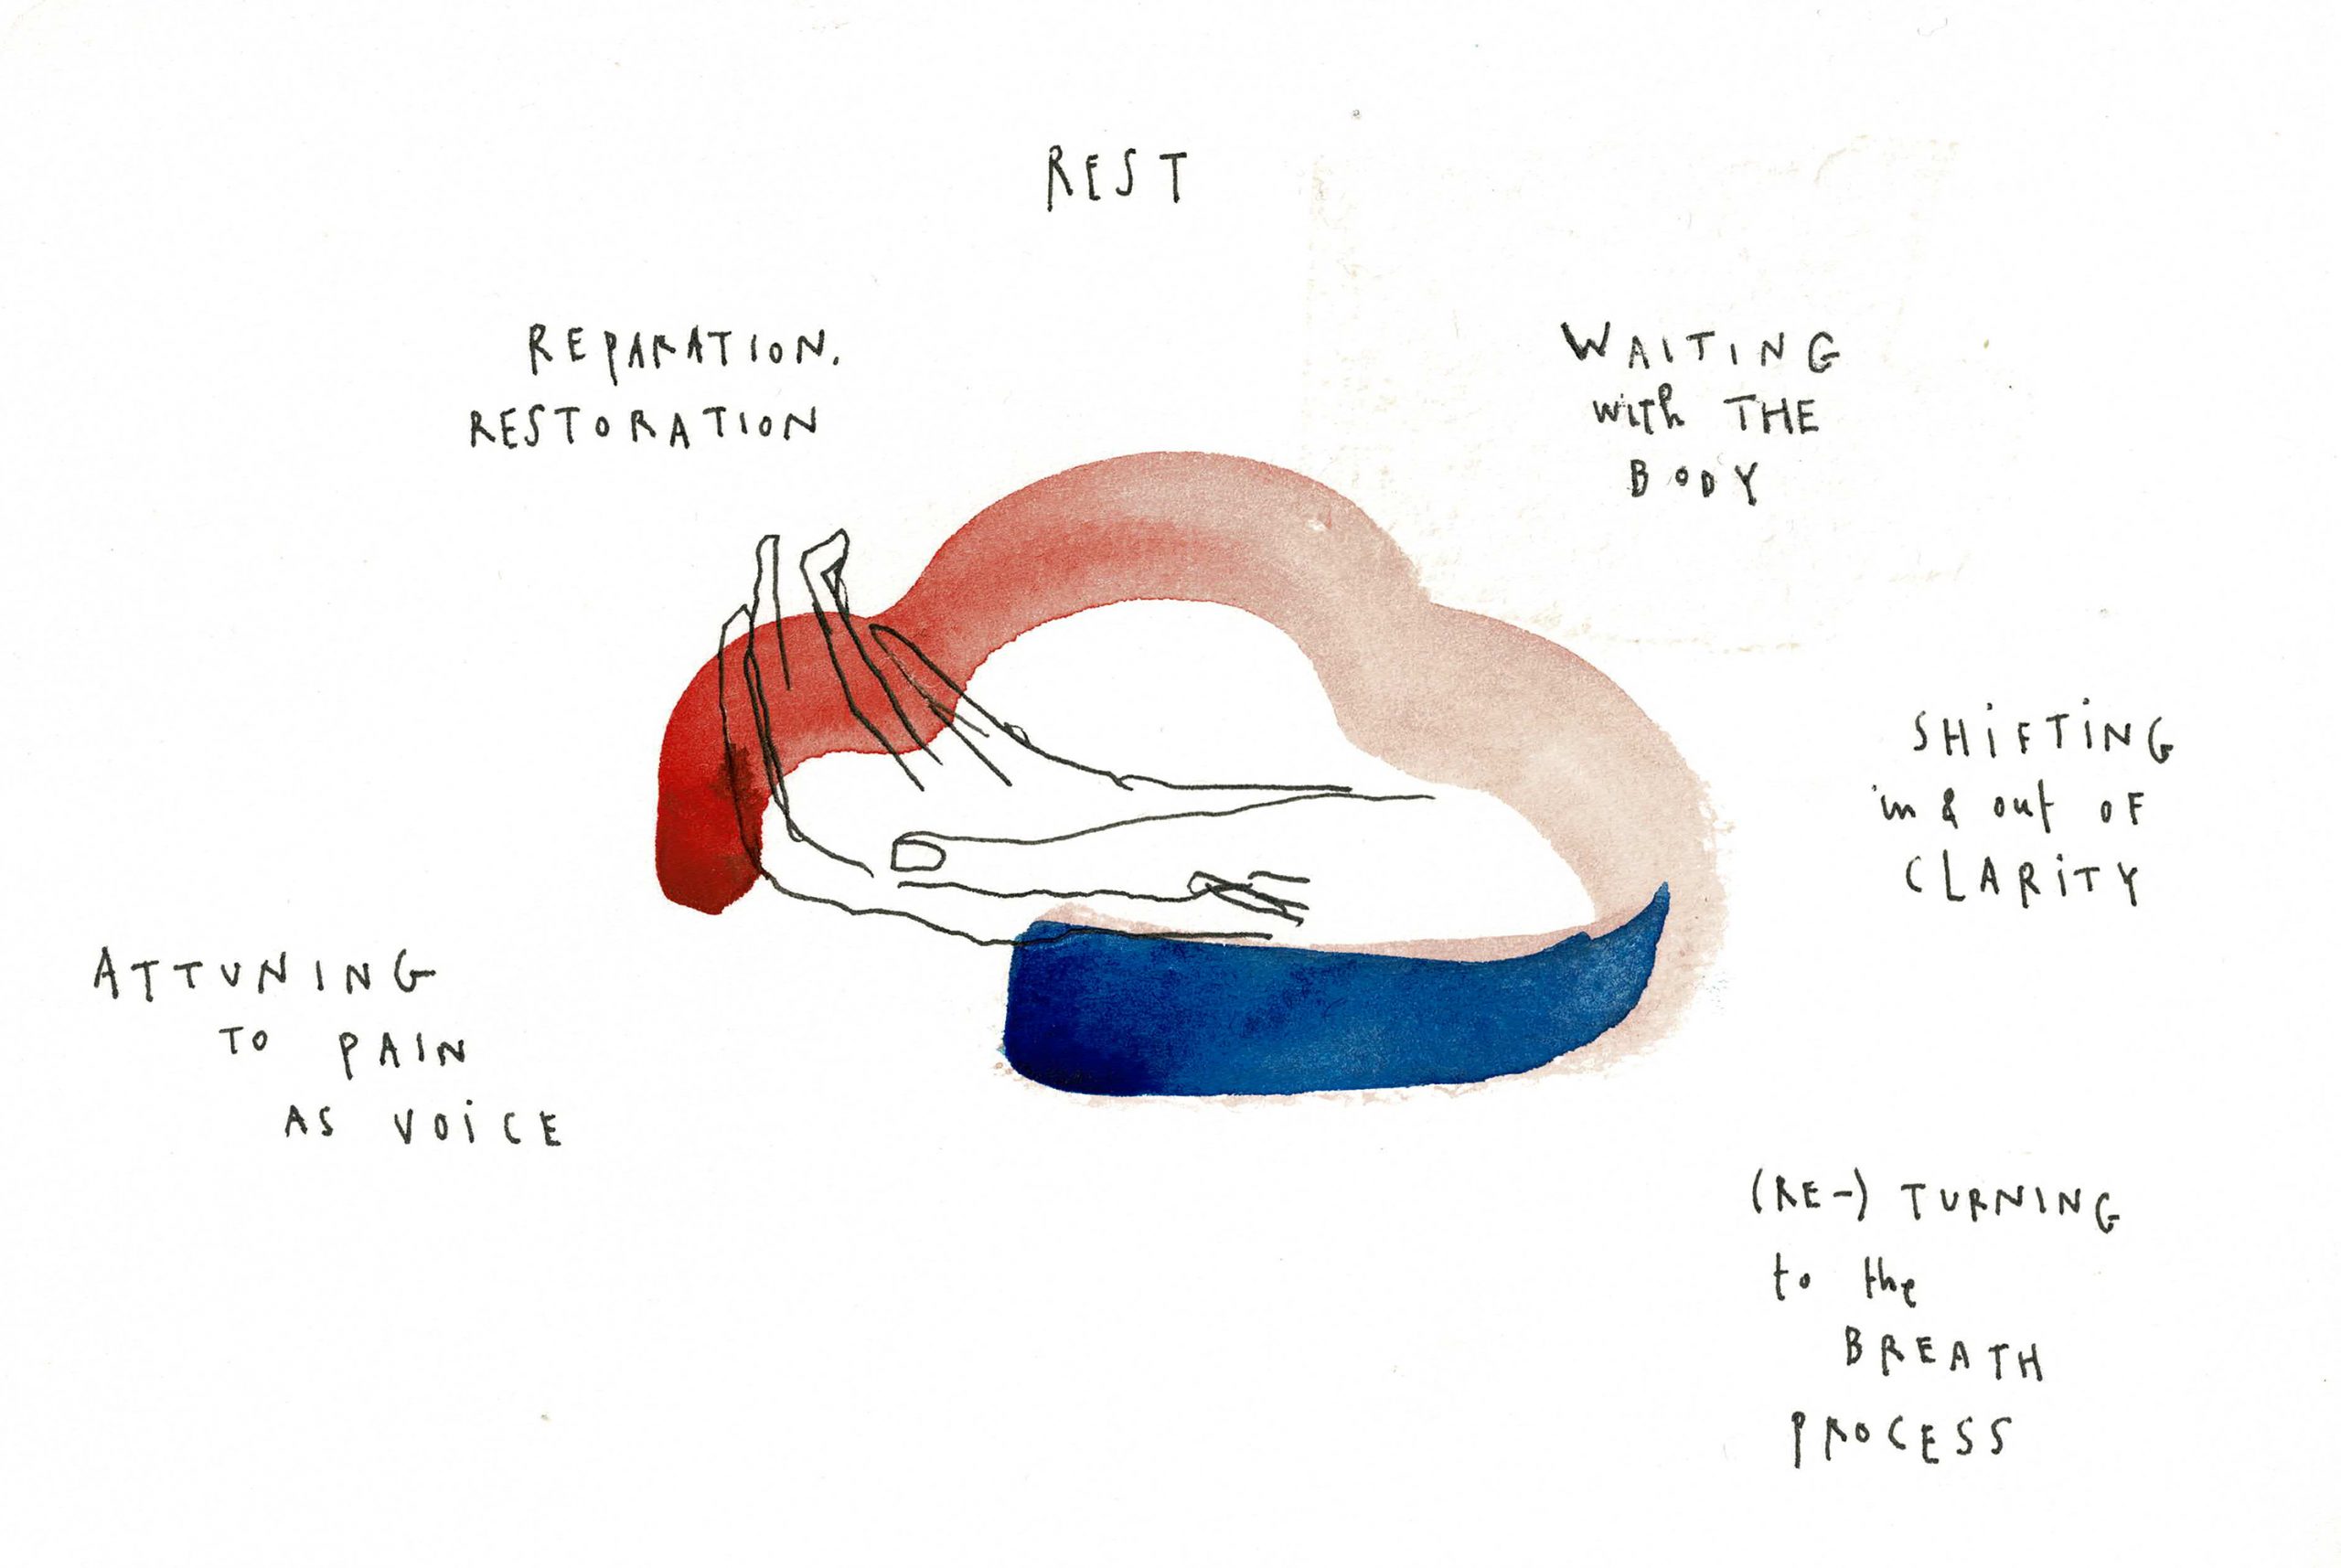 REST
REPARATION.
RESTORATION
WAITING
with THE
BODY
SHiFTiNG
in & out OF
CLARiTY
ATTUNING
TO PAIN
AS VOiCE
(RE-) TURNING
to the
BREATH
PROCESS